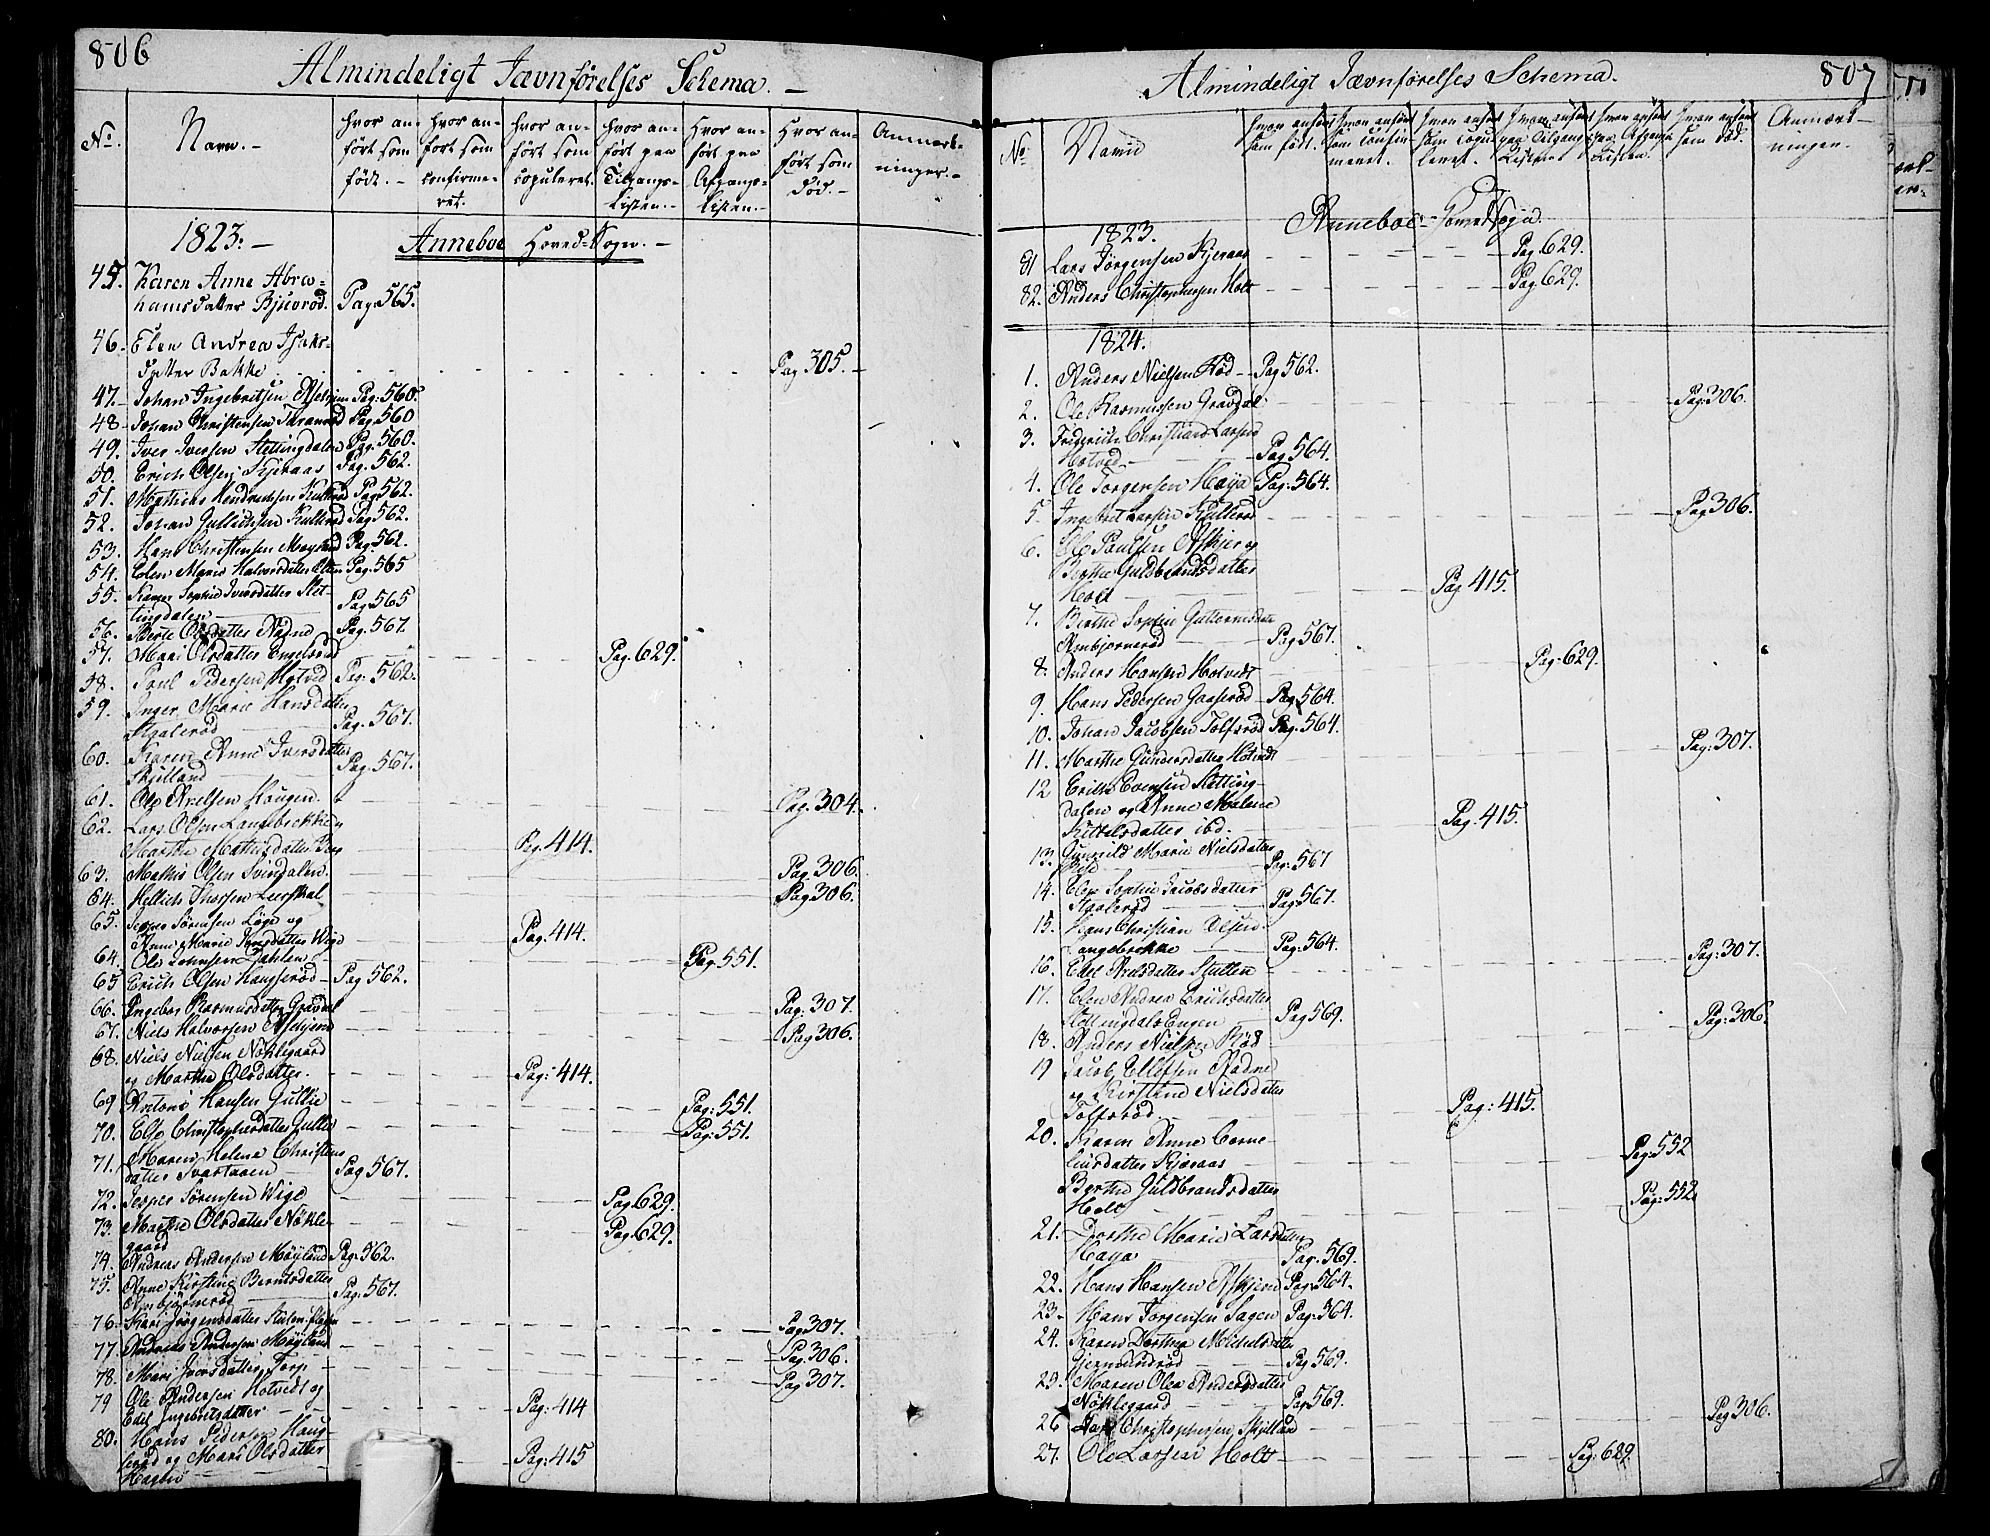 806
Almindeligt Jævnførelses Schema. –
No. Navn. – Hvor anført som født. – Hvor anført som confirmeret. Hvor anført som copuleret. Hvor anført paa Tilgangslisten. – Hvor anført paa Afgangslisten. – Hvor anført som død. – Anmærkninger. –
1823. – Anneboe Hoved-Sogn. –
45. Karen Anne Abra-
hamsdatter Bjuerød. Pag. 565.
46. Elen Andrea Isaks-
datter Bakke Pag 305. –
47. Johan Ingebretsen Askjem Pag. 560.
48 Johan Christensen Taranrød Pag. 560
49. Iver Iversen Slettingdalen Pag. 560.
50. Erich Olsen Kjeraas Pag. 562.
51. Mathias Hendrichsen Kullerød Pag. 562.
52. Johan Gullichsen Kullerød Pag 562.
53. Hans Christensen Møyland Pag. 562.
54. Elen Marie Halvorsdatter Pag. 565
55. Karen Sophie Iversdatter Slet-
tingdalen Pag. 565
56. Berte Olsdatter Rødne Pag. 567.
57. Mari Olsdatter Engelsrød Pag. 629.
58. Poul Pedersen Hotved Pag. 562.
59. Inger Marie Hansdatter
Staalerød Pag. 567.
60. Karen Anne Iversdatter
Skjelland Pag. 567.
61. Ole Axelsen Haugen. Pag. 304.
62. Lars Olsen Langebrekke og
Marthe Mathisdatter Pag. 414.
63. Mathis Olsen Svindalen. Pag. 306.
64. Hellich Thorsen Pag 306.
65. Jesper Sørensen Løge og
Anne Marie Wige Pag. 414.
64. Ole Johnsen Dahlen Pag. 551.
65 Erich Olsen Haugserød Pag 562.
66. Ingebor Rasmusdatter Gravdal Pag. 307.
67. Niels Halvorsen Askjem Pag 306.
68. Niels Nielsen Nøklegaard
og Marthe Olsdatter. Pag: 414.
69 Antoni Hansen Gullie Pag: 551.
70. Else Christophersdatter Gullie Pag: 551.
71. Maren Helene Christens
datter Svartaaen Pag 567.
72. Jesper Sørensen Wige Pag. 629.
73. Marthe Olsdatter Nøkle-
gaard Pag. 629.
74. Andreas Andersen Møyland Pag. 562.
75. Anne Kirstine Berntsdatter
Ambjørnerød Pag. 567.
76. Kari Jørgensdatter Pag 307.
77. Andreas Andersen Møyland Pag. 306.
78. Mari Iversdatter Torp Pag 307.
79 Ole Andersen Hotvedt og
Edel Ingebretsdatter Pag: 414
80. Hans Pedersen Haug-
serød og Mari Olsdatter
Pag: 415
Almindeligt Jævnførelses Schema. 807
No. Navne Hvor anført som født. Hvor anført som confirmeret. Hvor anført som copuleret. Hvor anført paa Tilgangs Listen. Hvor anført paa Afgangs Listen. Hvor anført som død. Anmærkningen.
1823. Anneboe Hoved Sogn.
81 Lars Jørgensen Kjeraas Pag 629.
82. Anders Christophersen Holt Pag 629.
1824.
1. Anders Nielsen Rød Pag 562.
2. Ole Rasmussen Gravdal Pag: 306.
3. Friderich Christian Larsen
Hotved Pag 564.
4. Ole Jørgensen Haya Pag: 564.
5. Ingebret Larsen Kullerød Pag 306.
6. Ole Paulsen Askjer og
Berthe Guldbrandsdatter
Holt Pag 415.
7. Berthe Sophie Guttormsdatter
Ambjørnerød Pag 567.
8. Anders Hansen Hotvedt Pag: 629.
9. Hans Pedersen Gaaserød Pag. 564.
10. Johan Jacobsen Tolfsrød Pag. 564.
11. Marthe Gundersdatter Hotvedt Pag: 307.
12 Erich Evensen Sletting-
dalen og Anne Malene
Kittelsdatter ibd. Pag. 415.
13. Gunnild Marie Nielsdatter
Pag: 567
14. Elen Sophie Jacobsdatter
Staalerød Pag. 567.
15. Hans Christian Olsen
Langebrekke Pag: 564.
16. Edel Nielsdatter Pag: 307.
17. Elen Andrea Erichsdatter
Slettingdals Engen Pag 569.
18. Anders Nielsen Rød Pag: 306.
19 Jacob Ellefsen Rødne
og Kirstine Nielsdatter
Tolfsrød Pag: 415.
20. Karen Anne Corne-
liusdatter Kjæraas Pag: 552
Berthe Guldbrandsdatter
Holt Pag: 552.
21. Dorthe Marie Larsdatter
Haya Pag. 569.
22. Hans Hansen Askjem Pag. 564.
23. Hans Jørgensen Sagen Pag: 564.
24. Karen Dorthea Michelsdatter
Gjermundrød Pag 569.
25. Maren Olea Andersdatter
Nøklegaard Pag 569.
26 Christophersen Skjelland Pag 306.
27. Ole Larsen Holt Pag: 629.